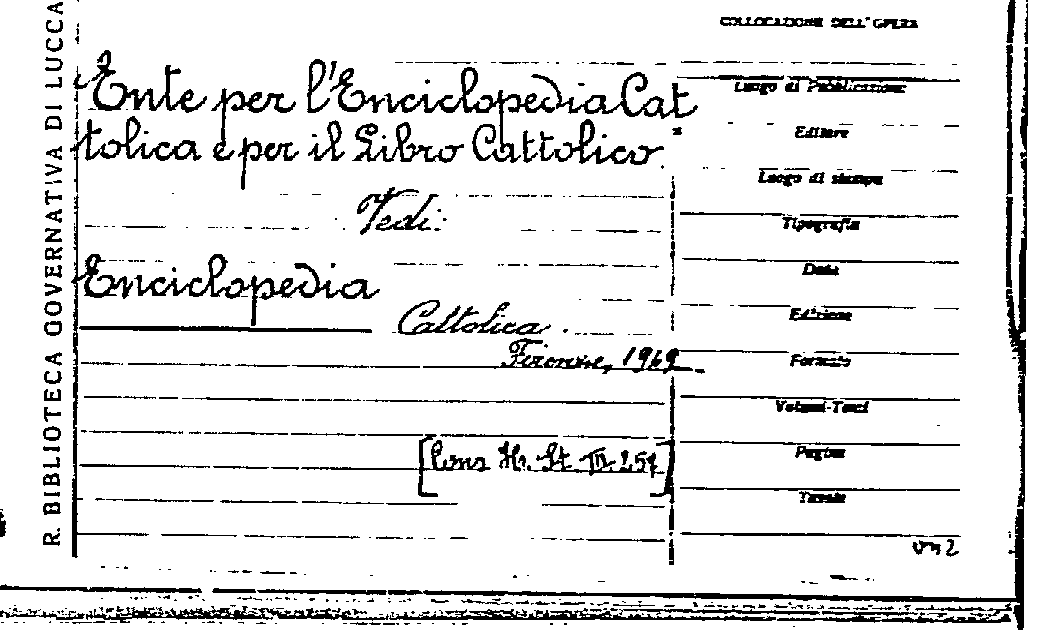 R. BIBLIOTECA GOVERNATIVA DI LUCCA
COLLOCAZIONE DELL'OPERA
"Ente per l'Enciclopedia Cat
tolica e per il Libro Cattolico."
Vedi:
Enciclopedia
Cattolica.
Firenze, 1969
[Cons St. III 257]
Luogo di Pubblicazione
Editore
Luogo di stampa
Tipografia
Data
Edizione
Formato
Volumi-Tomi
Pagine
Tavole